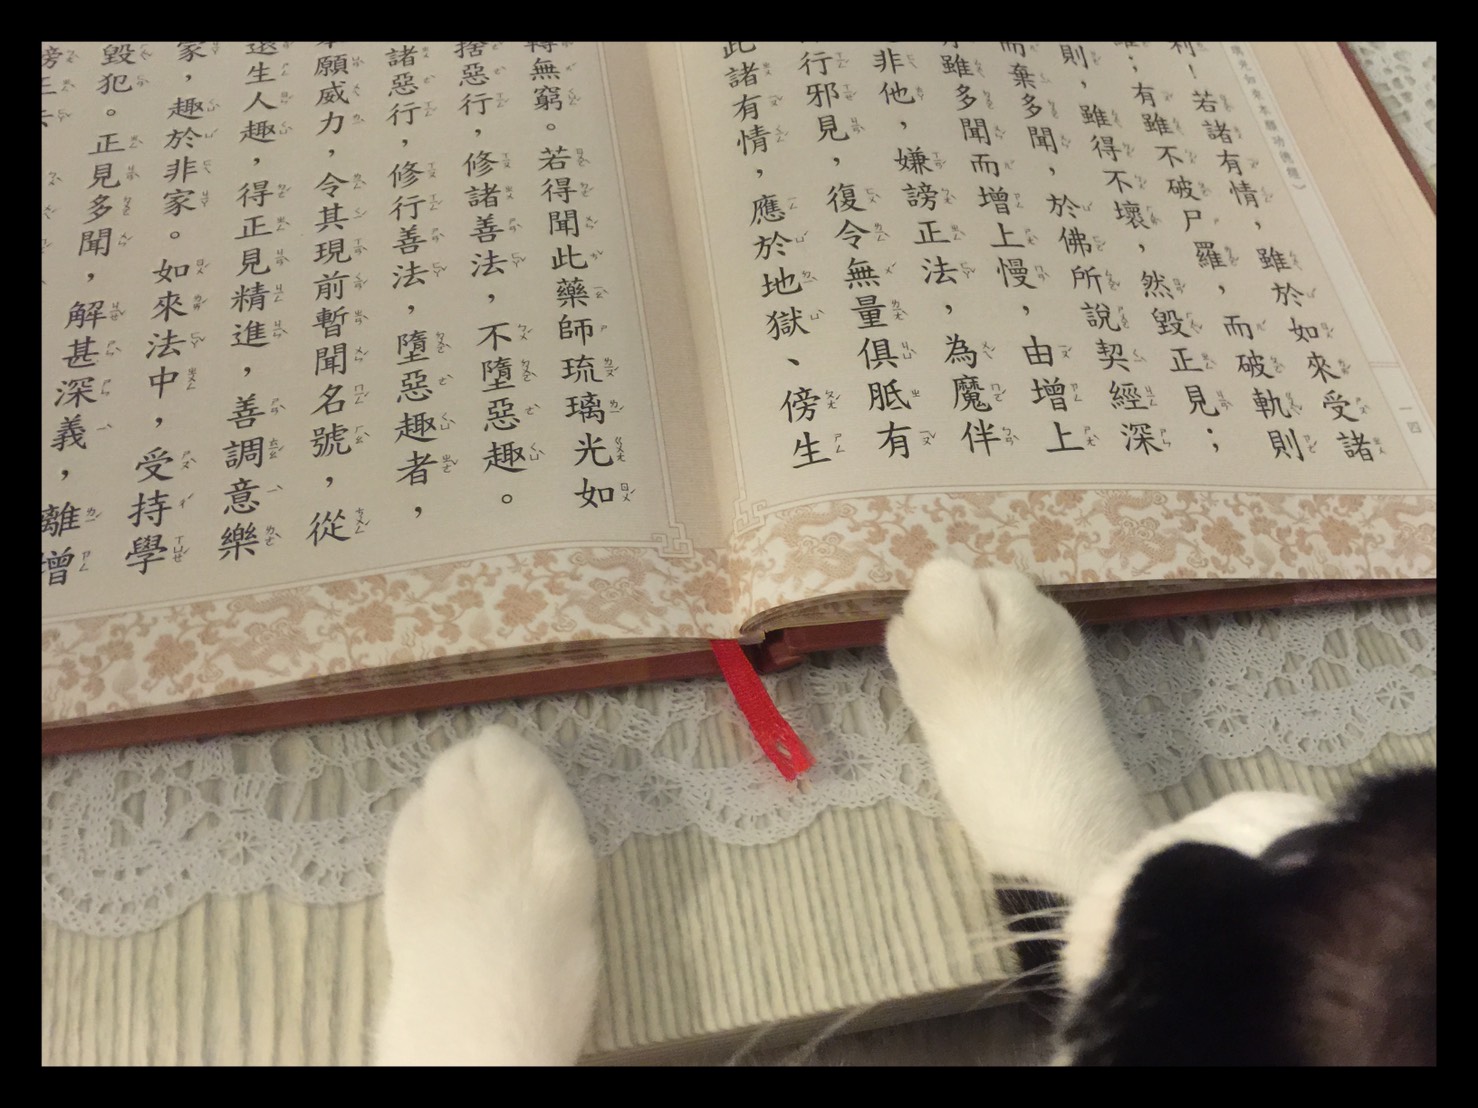 光如來本願功德經）
一四
利！若諸有情，雖於如來受諸
雖；有雖不破尸羅，而破軌則
則，雖得不壞，然毀正見；
而棄多聞，於佛所說契經深
雖多聞而增上慢，由增上
非他，嫌謗正法，為魔伴
行邪見，復令無量俱胝有
此諸有情，應於地獄、傍生
轉無窮。若得聞此藥師琉璃光如
捨惡行，修諸善法，不墮惡趣。
諸惡行，修行善法，墮惡趣者，
本願威力，令其現前暫聞名號，從
還生人趣，得正見精進，善調意樂
家，趣於非家。如來法中，受持學
毀犯。正見多聞，解甚深義，離增
謗正